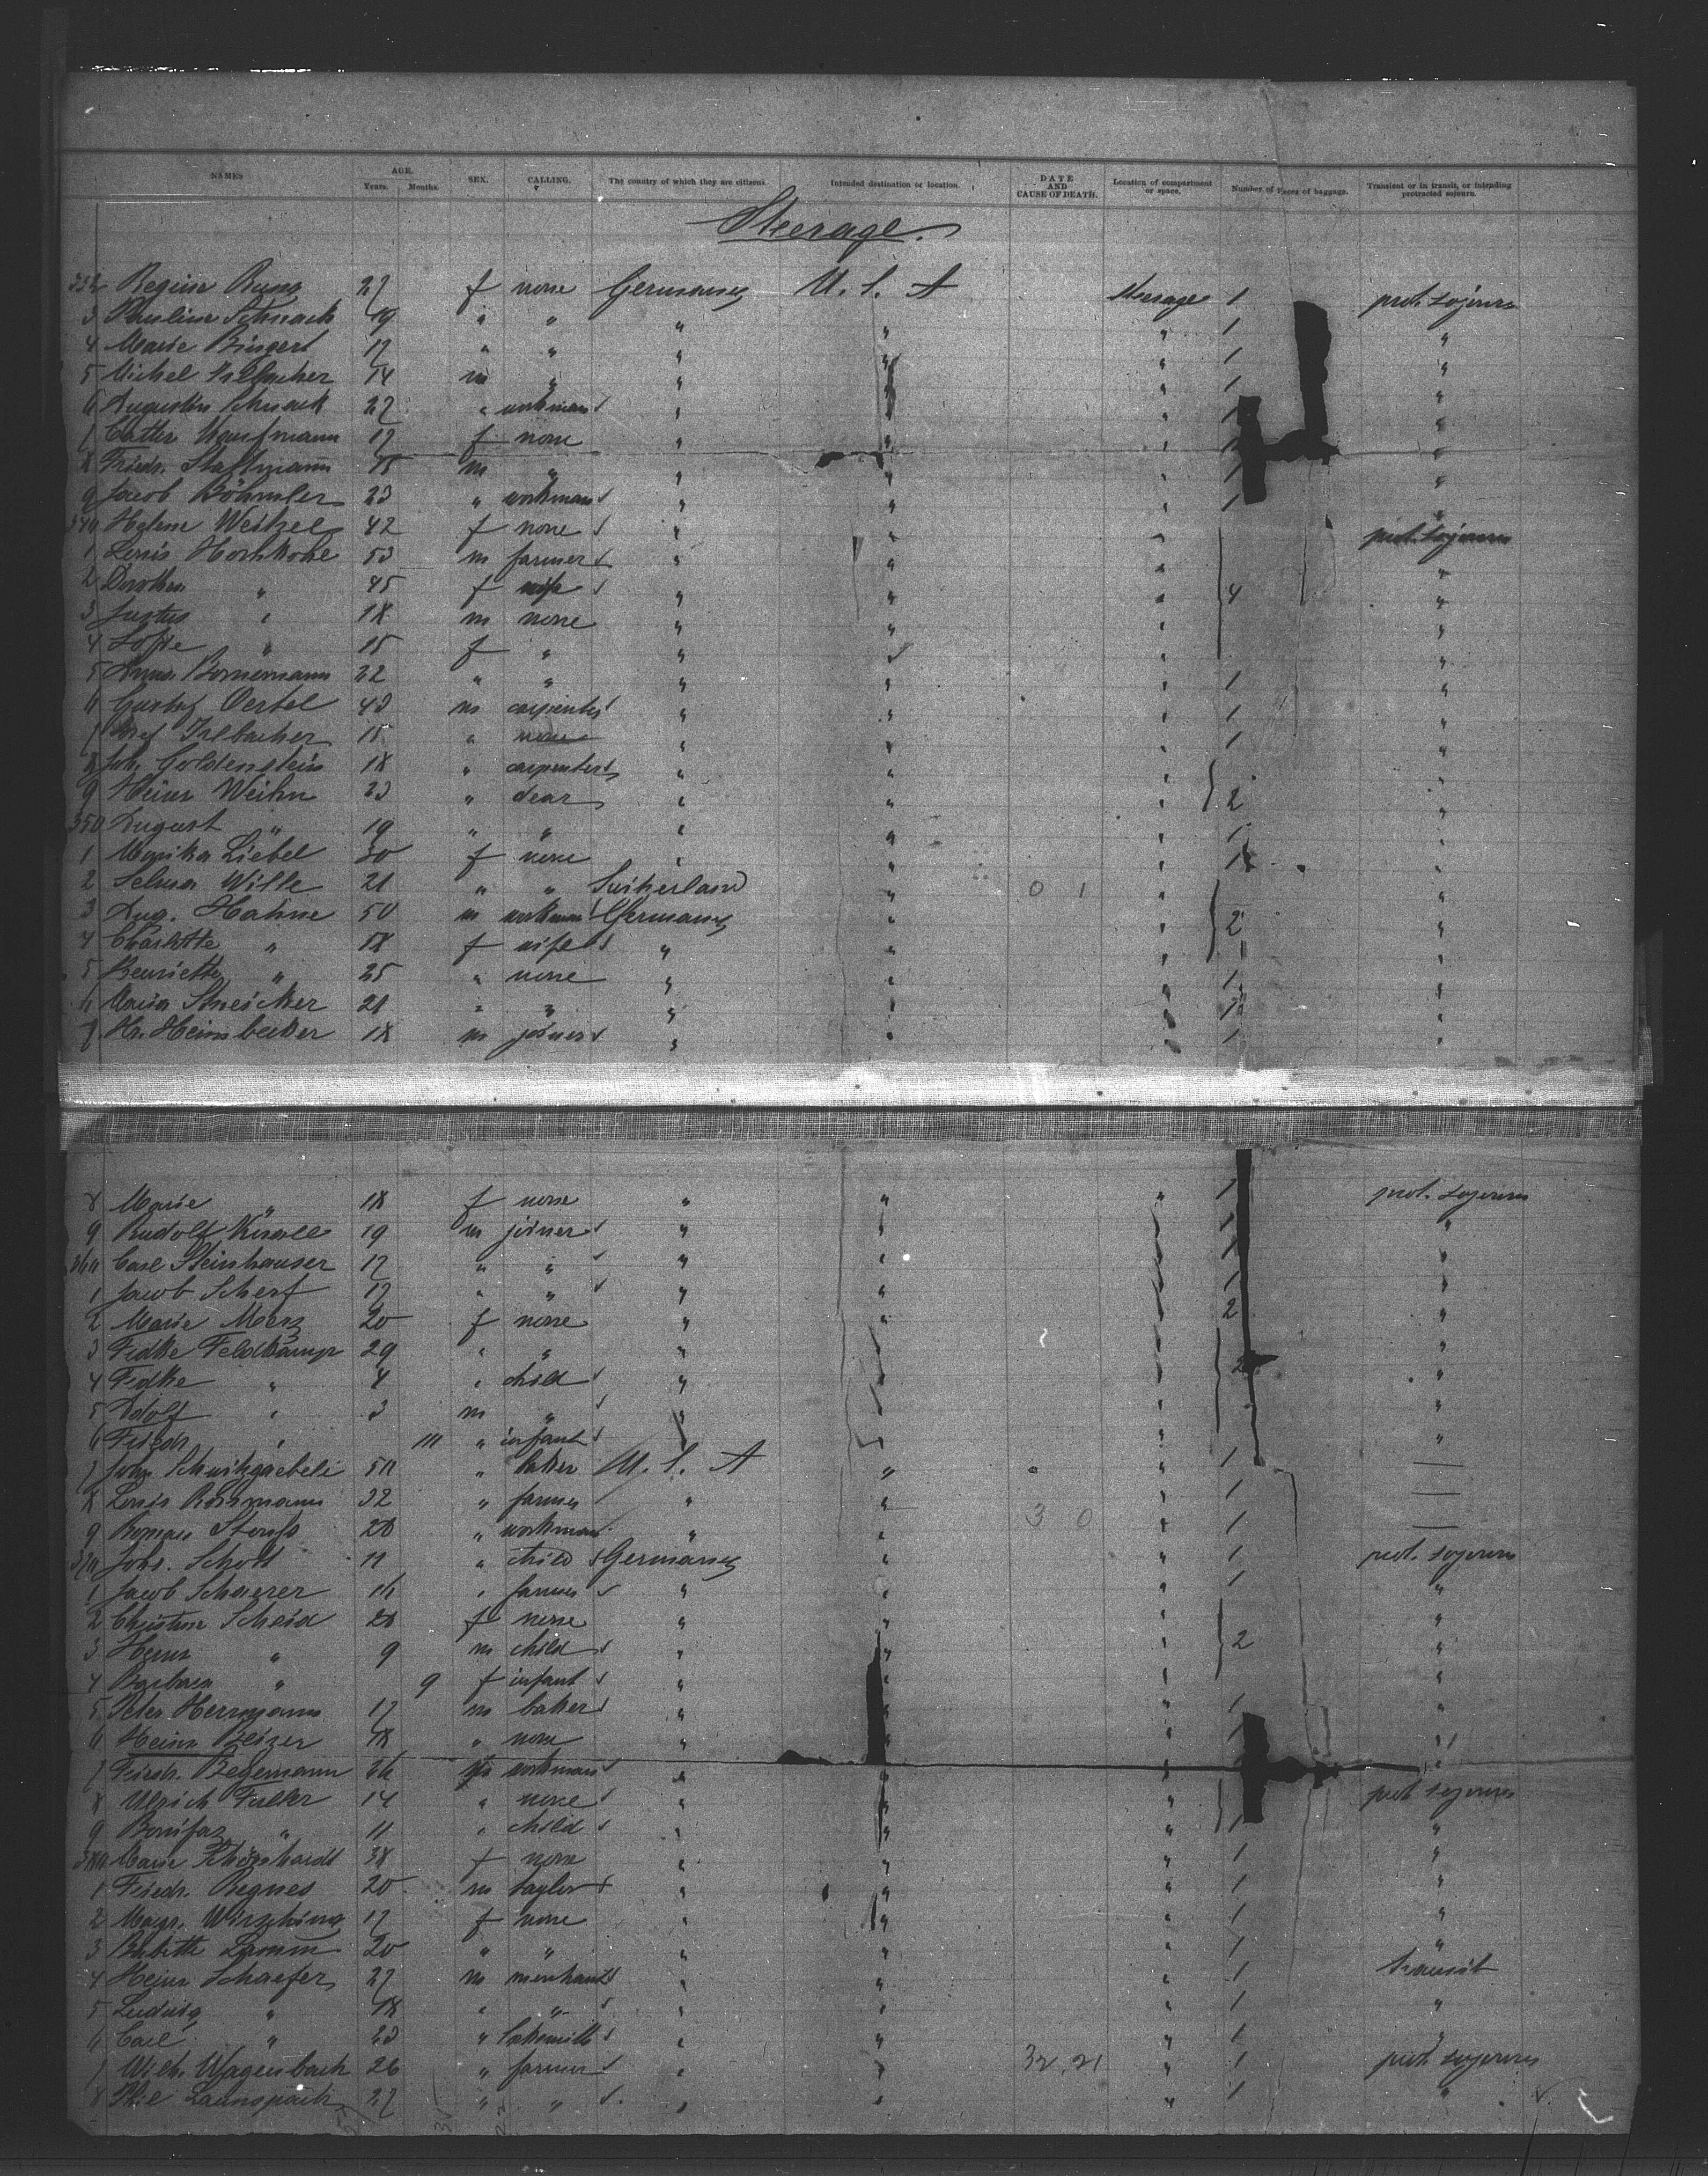 NAMES AGE. Years. Months. SEX. CALLING. The country of which they are citizens. Intended destination or location. DATE AND CAUSE OF DEATH. Location of compartment or space. Number of Pieces of baggage. Transient or in transit, or intending protracted sojourn.
Steerage.
Regine 27 f none Germany U. S. A Steerage 1 prot. sojourn
3 Pauline Schnack 19 " " " " " 1 "
4 Marie Bingert 17 " " " " " 1 "
5 Michel 14 m " " " " 1 "
6 Augustin Schnack 27 " workman " " " 1 "
7 Kaufmann 17 f none " " " 1 "
8 Friedr. 18 m " " " " 1 "
9 Jacob Böhmler 23 " workman " " " 1 "
340 Helene Weitzel 42 f none " " " prot. sojourn
1 Louis 53 m farmer " " " "
2 Dorothea " 45 f wife " " " 4 "
3 Justus " 18 m none " " " "
4 Sofie " 15 f " " " " "
5 Anna Bornemann 22 " " " " " 1 "
6 Gustav Oertel 43 m carpenter " " " 1 "
7 Josef Irlbacher 15 " none " " " 1 "
8 Joh. Goldenstein 18 " carpenter " " " "
9 Heinr. Weihn 23 " " " " 2 "
350 August " 19 " " " " " 1 "
1 Monika Liebel 30 f none " " " 1 "
2 Selma Wille 21 " " Switherland " 0 1 " "
3 Aug. Hahne 50 m workman Germany " " 2 "
4 Charlotte " 58 f wife " " " "
5 Henriette " 25 " none " " " 1 "
6 Maria Streicker 21 " " " " " 1 "
7 Hr. Heimbecker 18 m joiner " " " 1 "
8 Marie " 18 f none " " " 1 prot. sojourn
9 Rudolf 19 m joiner " " " 1 "
360 Carl Steinhauser 17 " " " " " 1 "
1 Jacob Scherf 17 " " " " " 1 "
2 Marie Merz 20 f none " " " 2 "
3 Fidke Feldkamp 29 " " " " " 2 "
4 Fidke " 4 " child " " " "
5 Adolf " 3 m " " " " "
6 Friedr. " " infant " " " "
7 Joh. Schwitzgaebele 50 " baker U. S. A " " 1 —
8 Louis Rossmann 32 " farmer " " 3 0 " 1 —
9 28 " workman " " " 1 —
370 Johs. Schott 11 " child Germany " " 1 prot. sojourn
1 Jacob Scherer 16 " farmer " " " 1 "
2 Christine Scheid 28 f none " " " "
3 Heinr. " 9 m child " " " 2 "
4 Barbara " 9 f infant " " " "
5 Peter Herrmann 17 m baker " " " 1 "
6 Heinr. Beizer 18 " none " " " 1 "
7 Friedr. Begemann 26 m workman " " " "
8 Ulrich Felker 14 " none " " " prot. sojourn
9 Bonifaz " 11 " child " " " 1 "
380 Marie 38 f none " " " 1 "
1 Friedr. Regnes 20 m taylor " " " 1 "
2 Magr. Wirsching 17 f none " " " 1 "
3 Babette Lamm 20 " " " " " 1 "
4 Heinr. Schaefer 27 m merchant " " " 1 transit
5 Ludwig " 18 " " " " " 1 "
6 Carl " 23 " " " " 1 "
7 Wilh. Wagenbach 26 " farmer " " 32 21 " 1 prot. sojourn
8 Launspach 27 " " " " " 1 "